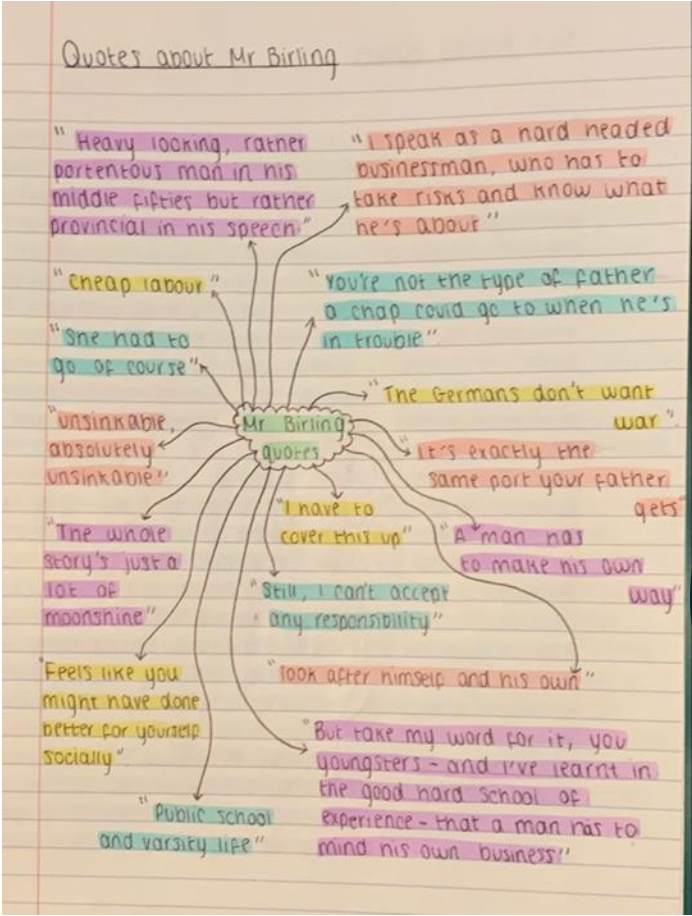 Quotes about Mr Birling
"Heavy looking, rather
portentous man in his
middle fifties but rather
provincial in his speech"
"I speak as a hard headed
businessman, who has to
take risks and know what
he's about"
"cheap labour"
"you're not the type of father
a chap could go to when he's
in trouble"
"She had to
go of course"
"The Germans don't want
war"
Mr Birling
quotes
"unsinkable,
absolutely
unsinkable"
"It's exactly the
same port your father
gets"
"I have to
cover this up"
"A man has
to make his own
way"
"The whole
story's just a
lot of
moonshine"
"Still, I can't accept
any responsibility"
"look after himself and his own"
"Feels like you
might have done
better for yourself
socially"
"But take my word for it, you
youngsters - and I've learnt in
the good hard school of
experience - that a man has to
mind his own business!"
"Public school
and varsity life"